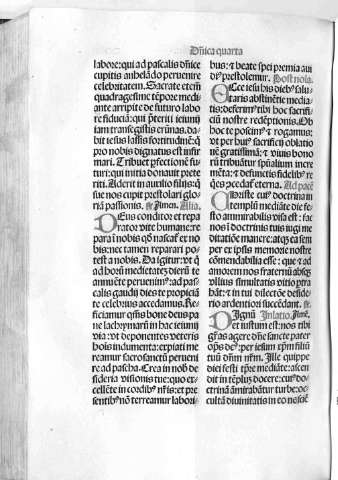 Dñica quarta
labore: qui ad pascalis dñice
cupitis anhelādo peruenire
celebritatem. Sacrate etem̄
quadragesime tēpore medi-
ante arripite de futuro labo
re fiduciā: qui p̄teriti ieiunij
iam transegistis erūnas. da-
bit iesus lassis fortitudinē: q̄
pro nobis dignatus est infir
mari. Tribuet pfectionē futu
ri: qui initia donauit prete
riti. Aderit in auxilio filijs: q̄
sue nos cupit prestolari glo-
riā passionis. ꝶ Amen. Alia.
DEus conditor et repa
rator vite humane: re
para ī nobis qd̄ nascaꝉ ex no
bis: nec tamen reparari po-
test a nobis. Da igitur: vt q̄
ad horū medietatez dierū te
annuēte peruenimꝰ: ad pas-
calis gaudij dies te propiciā
te celebrius accedamus. Re-
ficiamur q̄sūs bone deus pa
ne lachrymarū in hac ieiunij
via: vt deponentes veteris
hoīs indumenta: expiati me
reamur sacrosanctū perueni
re ad pascha. Crea in nob̄ de
sideria visionis tue: quo ex-
cellēte in cordibꝰ nr̄is: et pre
sentibꝰ nō terreamur labori-
bus: ⁊ beate spei premia aui
diꝰ prestolemur. Post nola.
ECce iesu his diebꝰ salu-
taris abstinētie media-
tis: deferimꝰ tibi hoc sacrifi-
ciū nostre redēptionis. Ob
hoc te poscimꝰ ⁊ rogamus:
vt per huiꝰ sacrificij oblatio
nē gratissimā: ⁊ viuis bono
rū tribuatur spūalium incre
mēta: ⁊ defunctis fidelibꝰ re
q̄es pcedaꝉ eterna. Ad pacē
CHriste cuiꝰ doctrina in
templū mediāte die fe-
sto ammirabilis visa est: fac
nos ī doctrinis tuis iugi me
ditatiōe manere: atqꝫ ea sem
per ex ipsis memorie nostre
cōmendabilia esse: que ⁊ ad
amorem nos fraternū absqꝫ
vllius simultatis vitio ptra
hāt: ⁊ in tui dilectōe deside-
rio ardentiori succēdant. ꝶ
DIgnū Inlatio. Amē.
et iustum est: nos tibi
gr̄as agere dn̄e sancte pater
op̄s deꝰ: per iesum xp̄m filiū
tuū dn̄m nr̄m. Ille quippe
diei festi tp̄re mediāte: ascen
dit in tēplū docere: cuiꝰ do-
ctrinā āmirābatur turbe: oc-
cultā diuinitatis in eo nesciē